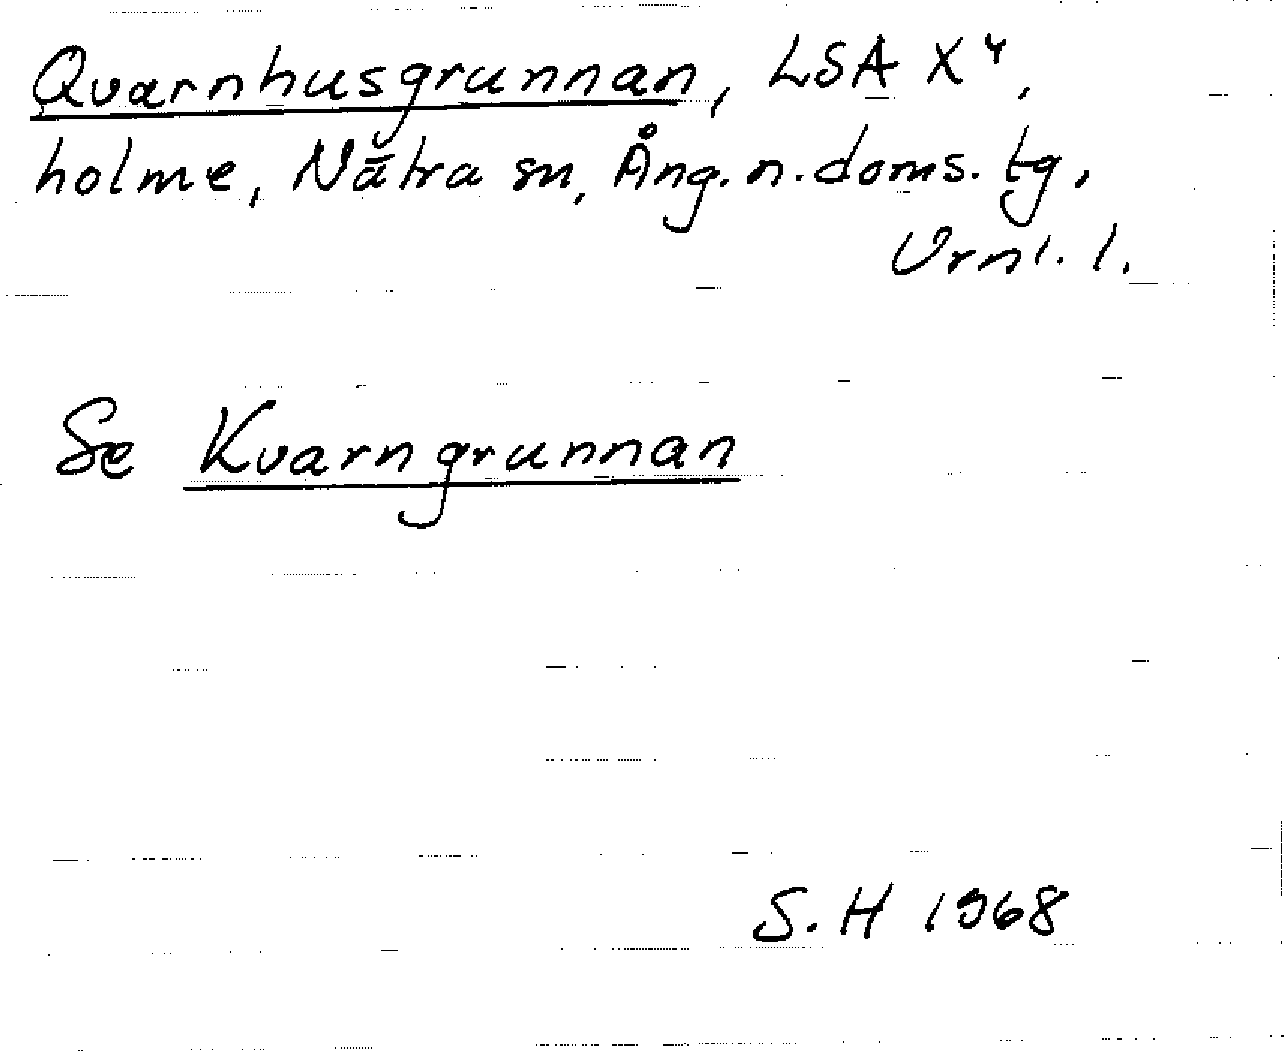 Qvarnhusgrunnan, LSA X⁴,
holme, Nätra sn, Ång.n.doms. tg,
Vrnl. l.
Se Kvarngrunnan
S.H 1968